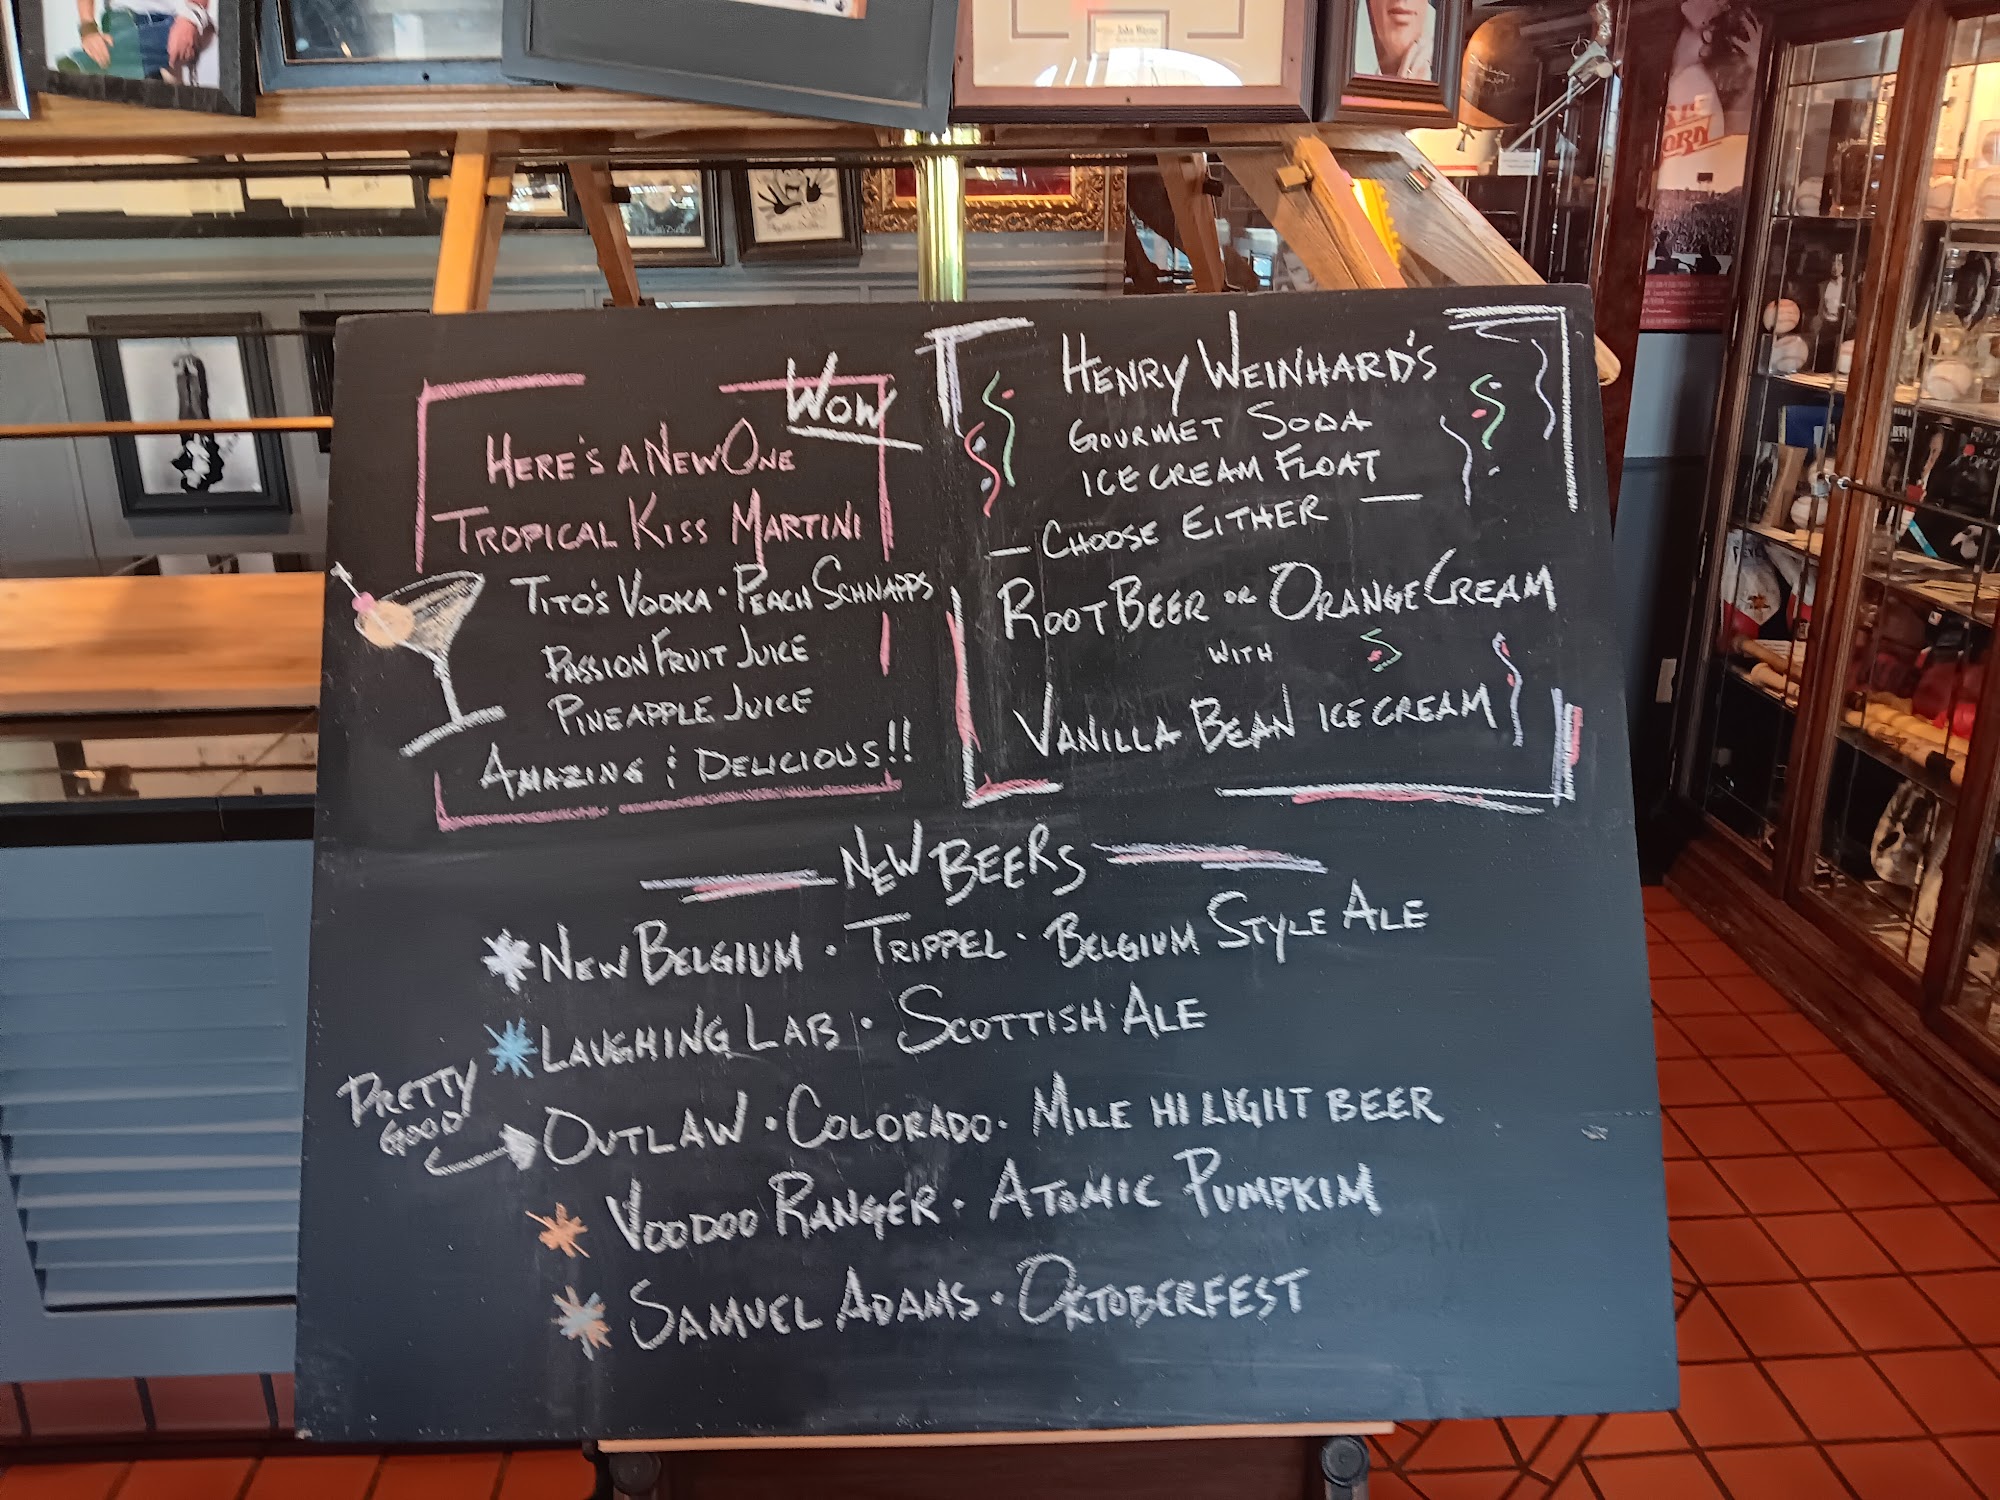 John Wayne
Wow
Here's a New One
Tropical Kiss Martini
Tito's Vodka · Peach Schnapps
Passion Fruit Juice
Pineapple Juice
Amazing & Delicious!!
Henry Weinhard's
Gourmet Soda
Ice Cream Float
— Choose Either —
Root Beer or Orange Cream
with
Vanilla Bean Ice Cream
New Beers
New Belgium · Trippel · Belgium Style Ale
Laughing Lab · Scottish Ale
Pretty
Good
Outlaw · Colorado · Mile Hi Light Beer
Voodoo Ranger · Atomic Pumpkim
Samuel Adams · Oktoberfest